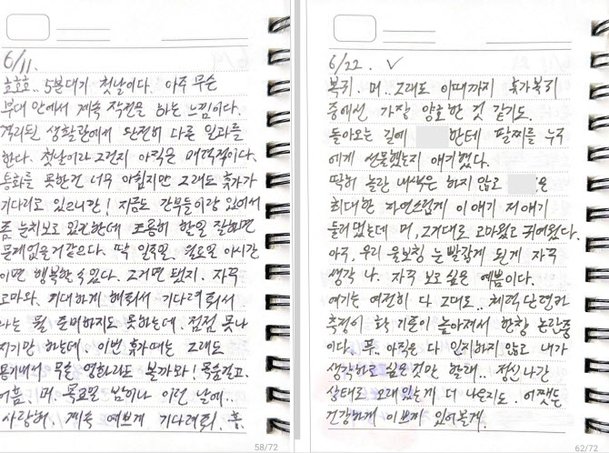 6/11.
호호호.. 5분대기 첫날이다. 아주 무슨
부대 안에서 계속 작전을 하는 느낌이다.
격리된 생활관에서 완전히 다른 일과를
한다. 첫날이라 그런지 아직은 매력적이다.
통화를 못한건 너무 아쉽지만 그래도 휴가가
기다리고 있으니깐! 지금도 간부들이랑 있어서
좀 눈치보고 있긴한데 조용히 할일 잘하면
문제없을거같으다. 딱 일주일. 월요일 이시간
이면 행복할 수 있다. 그거면 됐지. 자꾸
고마워. 기대하게 해줘서 기다려줘서
나는 뭘 준비하지도 못하는데. 점점 못나
지기만 하는데. 이번 휴가때는 그래도
용기내서 볼까봐!
머. 목요일 밤이나 이런 날에..
사랑해. 계속 예쁘게 기다려줘. 흥.
58/72
6/22. ✓
복귀. 머.. 그래도 이때까지 휴가복귀
중에선 가장 양호한 것 같기도.
돌아오는 길에 한테 팔찌를 누구
에게 선물했는지 얘기했다.
딱히 놀란 내색은 하지 않고 은
최대한 자연스럽게 이얘기 저얘기
들려줬는데 머, 그거대로 고마웠고 귀여웠다.
아주. 우리 울보찡 눈 빨갛게 된게 자꾸
생각 나. 자꾸 보고싶은 예쁨이다.
여기는 여전히 다 그대로.. 체력단련
측정이 확 기준이 높아져서 한창 논란중
이다. 푸. 아직은 다 인지하지 않고 내가
생각하고 싶은 것만 할래.. 정신나간
상태로 오래있는게 더 나은지도. 어쨌든
건강하게 이쁘게 있어볼게.
62/72